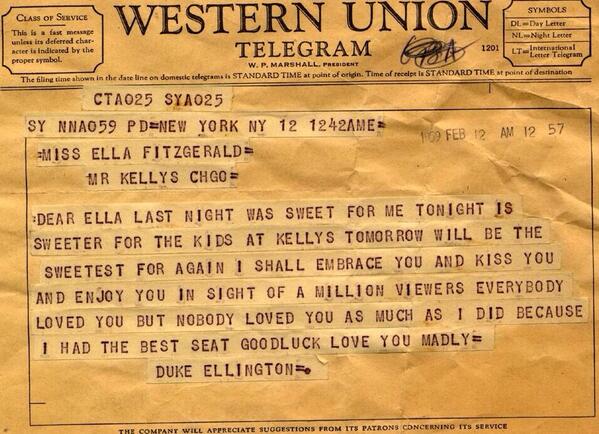 CLASS OF SERVICE
This is a fast message
unless its deferred char-
acter is indicated by the
proper symbol.
WESTERN UNION
TELEGRAM
W. P. MARSHALL, PRESIDENT
1201
SYMBOLS
DL=Day Letter
NL=Night Letter
LT=International Letter Telegram
The filing time shown in the date line on domestic telegrams is STANDARD TIME at point of origin. Time of receipt is STANDARD TIME at point of destination
CTA025 SYA025
SY NNA059 PD=NEW YORK NY 12 1242AME=
FEB 12 AM 12 57
=MISS ELLA FITZGERALD=
MR KELLYS CHGO=
=DEAR ELLA LAST NIGHT WAS SWEET FOR ME TONIGHT IS
SWEETER FOR THE KIDS AT KELLYS TOMORROW WILL BE THE
SWEETEST FOR AGAIN I SHALL EMBRACE YOU AND KISS YOU
AND ENJOY YOU IN SIGHT OF A MILLION VIEWERS EVERYBODY
LOVED YOU BUT NOBODY LOVED YOU AS MUCH AS I DID BECAUSE
I HAD THE BEST SEAT GOODLUCK LOVE YOU MADLY=
DUKE ELLINGTON=
THE COMPANY WILL APPRECIATE SUGGESTIONS FROM ITS PATRONS CONCERNING ITS SERVICE